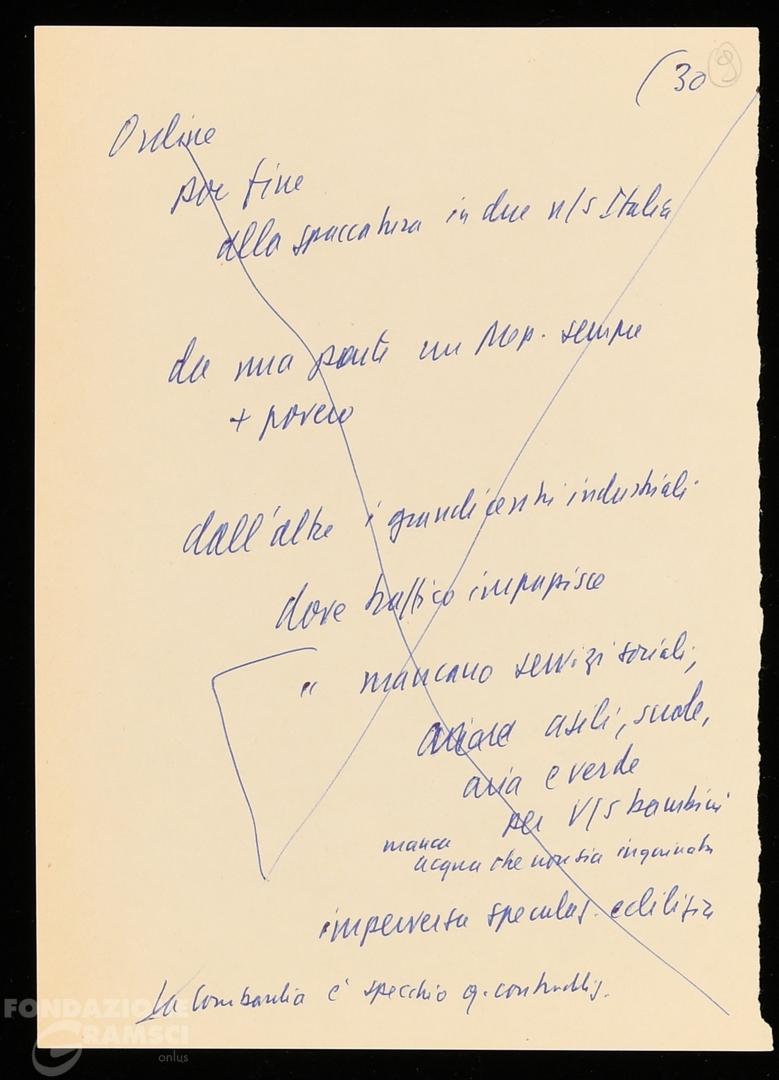 (30 9
Ordine
per fine
alla spaccatura in due n/s Italia
da una parte un Mep. sempre
+ povero
dall'altra i grandi centri industriali
dove traffico impazzisce
" mancano servizi sociali,
asili, scuole,
aria e verde
per V/s bambini
manca
acqua che non sia inquinata
imperversa speculaz. edilizia
La Lombardia è specchio q. contraddiz.
FONDAZIONE
GRAMSCI
onlus